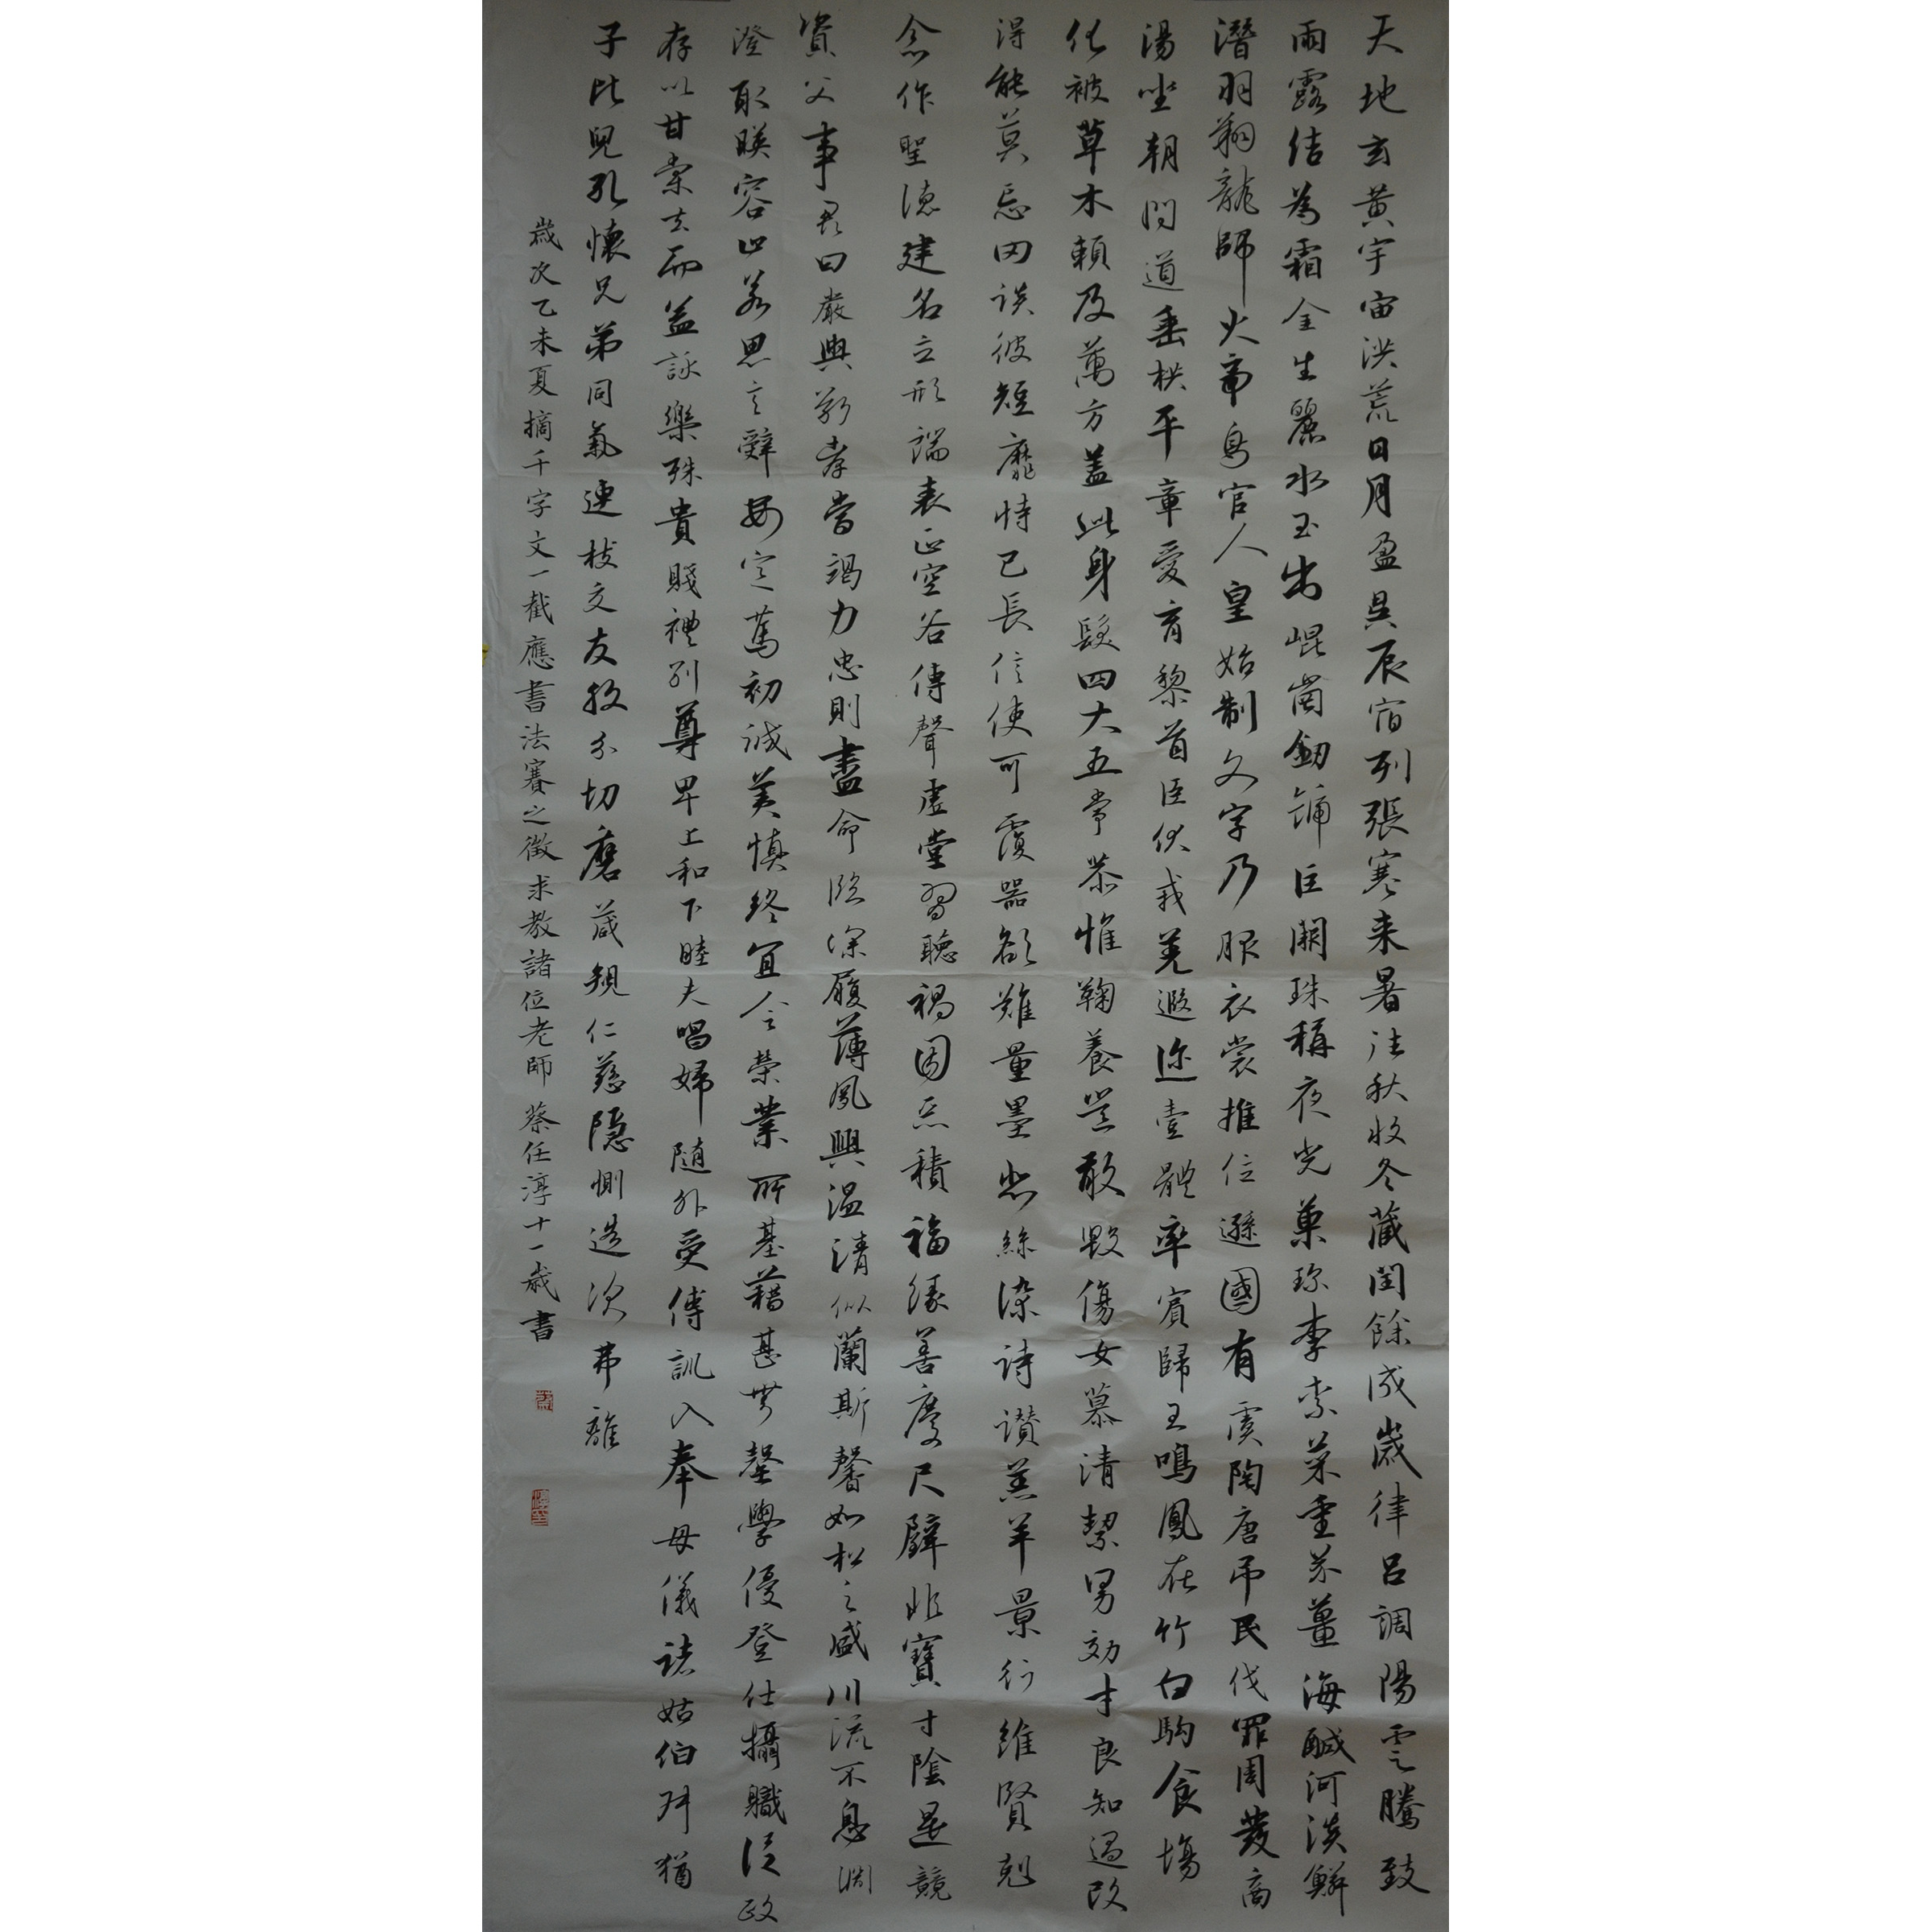 天地玄黃宇宙洪荒日月盈昃辰宿列張寒来暑往秋收冬藏閏餘成歲律呂調陽雲騰致
雨露結為霜金生麗水玉出崐崗劒號巨闕珠稱夜光菓珎李柰菜重芥薑海鹹河淡鱗
潛羽翔龍師火帝鳥官人皇始制文字乃服衣裳推位遜國有虞陶唐弔民伐罪周發商
湯坐朝問道垂拱平章愛育黎首臣伏戎羌遐邇壹體率賓歸王鳴鳳在竹白駒食場
化被草木賴及萬方蓋此身髮四大五常恭惟鞠養豈敢毀傷女慕清絜男効才良知過改
得能莫忘罔談彼短靡恃己長信使可覆器欲難量墨悲絲染詩讚羔羊景行維賢剋
念作聖德建名立形端表正空谷傳聲虛堂習聽禍因惡積福緣善慶尺璧非寶寸陰是競
資父事君曰嚴與敬孝當竭力忠則盡命臨深履薄夙興溫凊似蘭斯馨如松之盛川流不息淵
澄取暎容止若思言辭安定篤初誠美慎終宜令榮業所基藉甚無竟學優登仕攝職從政
存以甘棠去而益詠樂殊貴賤禮別尊卑上和下睦夫唱婦随外受傅訓入奉母儀諸姑伯叔猶
子比兒孔懷兄弟同氣連枝交友投分切磨箴規仁慈隱惻造次弗離
歲次乙未夏摘千字文一截應書法賽之徵求教諸位老師 蔡任淳十一歲書